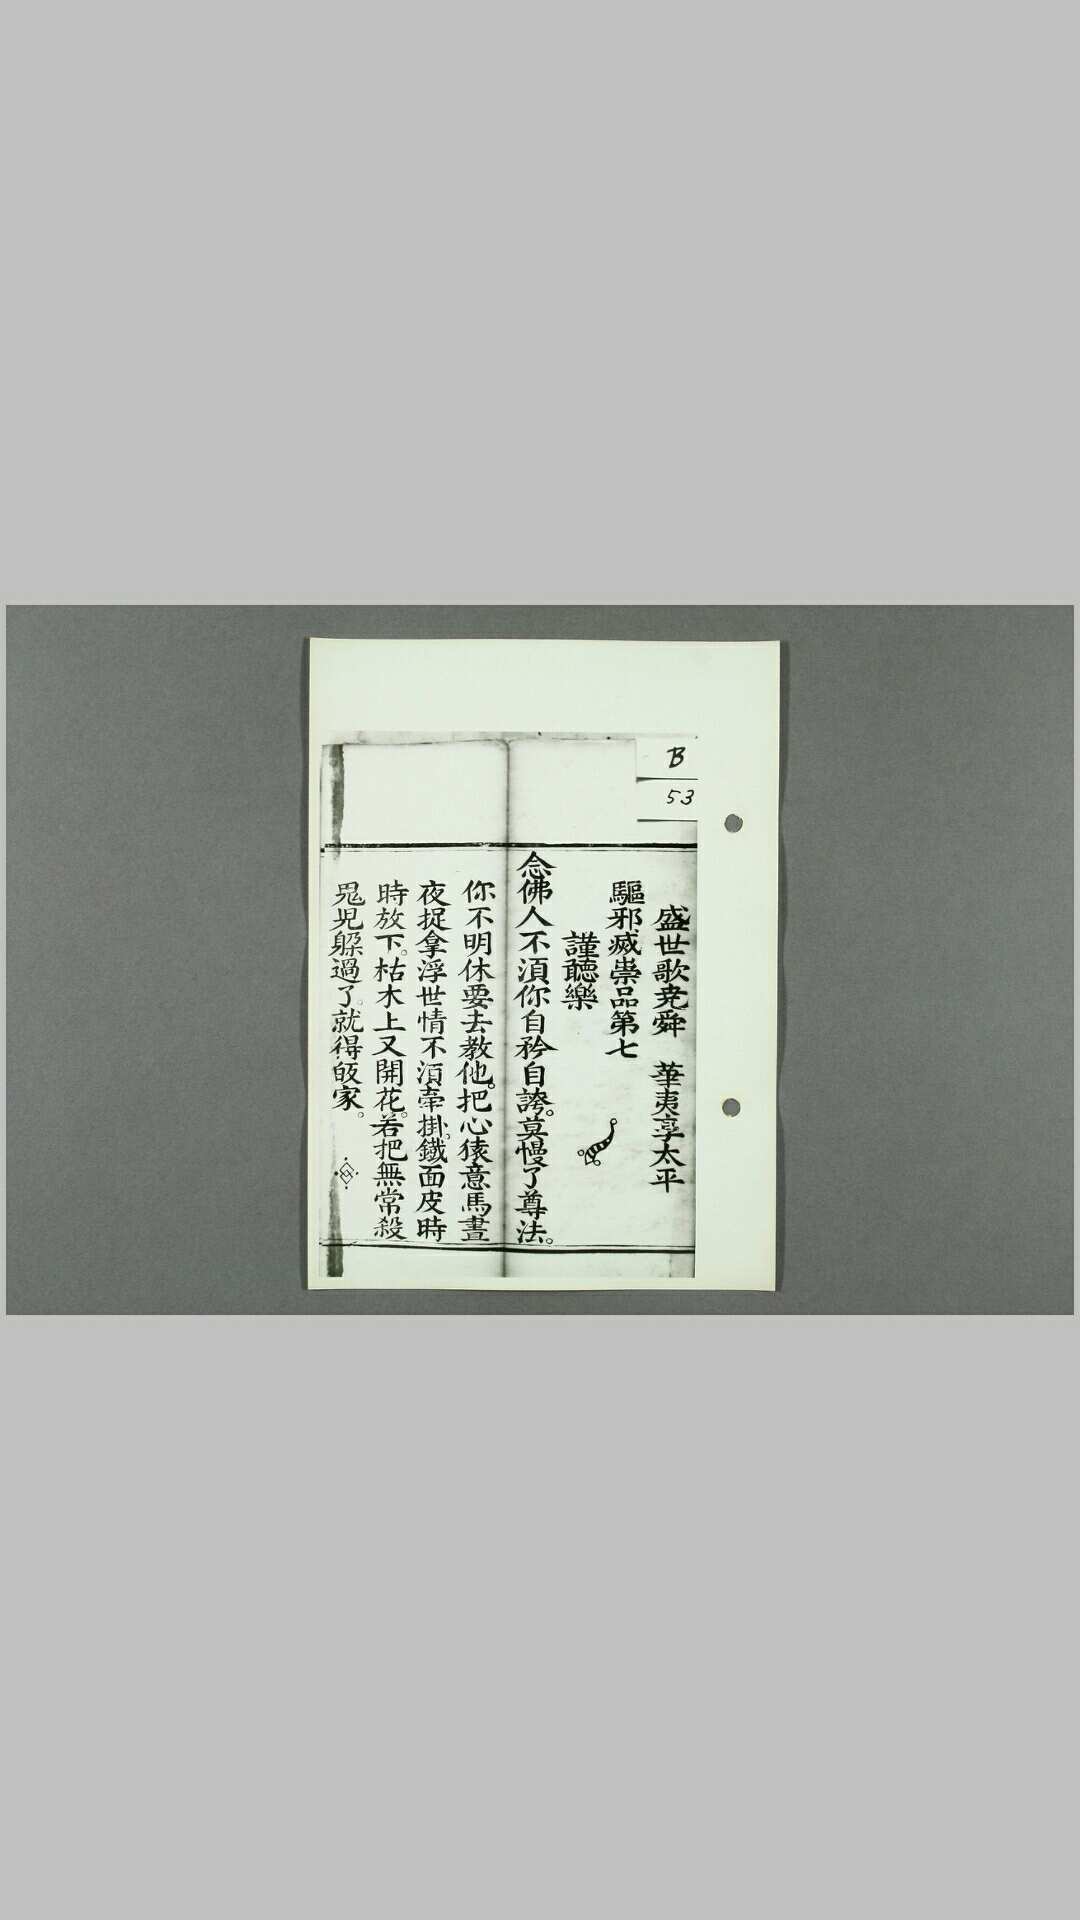 B
53
盛世歌尭舜　華夷享太平
驅邪滅祟品第七
謹聽樂
念佛人不湏你自矜自誇。莫慢了尊法。
你不明休要去教他。把心猿意馬晝
夜捉拿浮世情不湏牽掛。鐵面皮時
時放下。枯木上又開花。若把無常殺
鬼児躱過了。就得皈家。